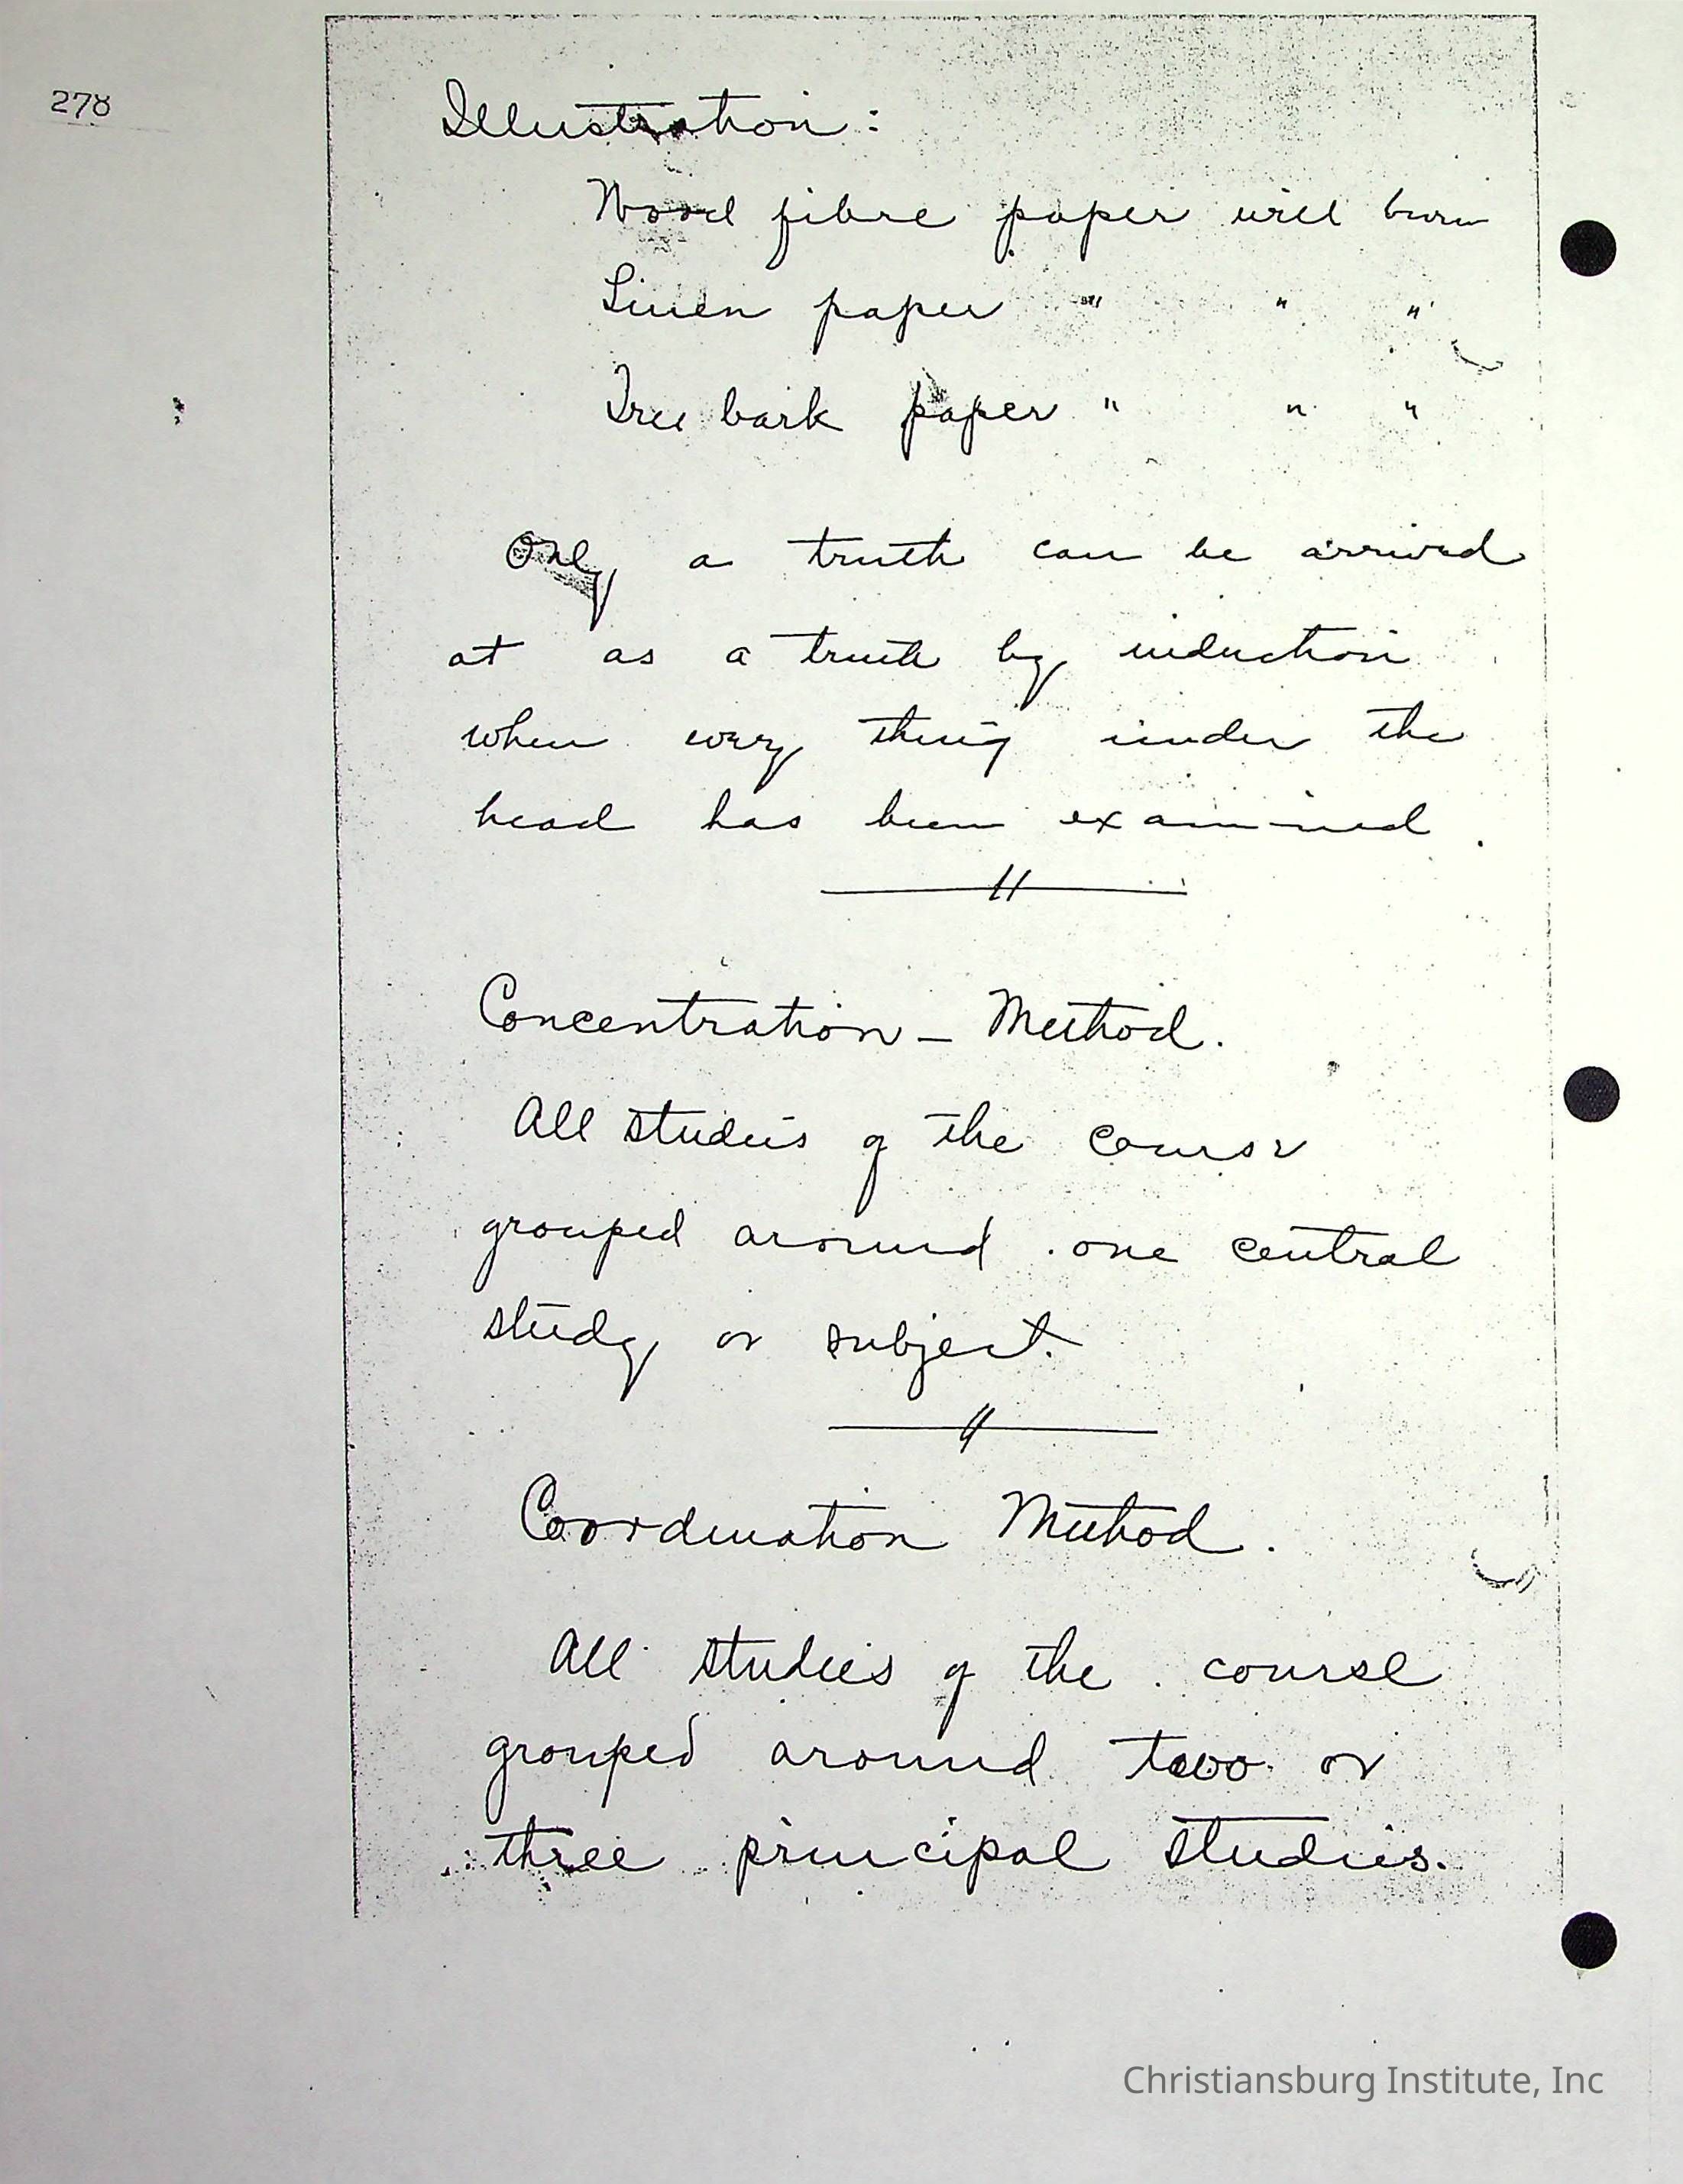 278
Illustration:
Wood fibre paper will burn
Linen paper " " "
Tree bark paper " " "
Only a truth can be arrived
at as a truth by induction
when every thing under the
head has been examined.
Concentration - Method.
All studies of the course
grouped around one central
study or subject.
Coordination Method.
All studies of the course
grouped around two or
three principal studies.
Christiansburg Institute, Inc